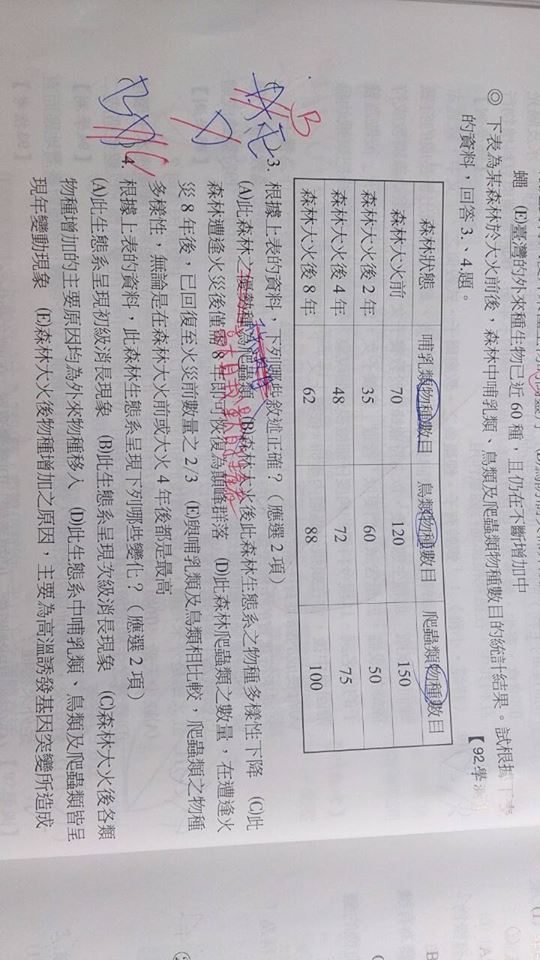 蠅 (E)臺灣的外來種生物已近 60 種，且仍在不斷增加中
◎ 下表為某森林於大火前後，森林中哺乳類、鳥類及爬蟲類物種數目的統計結果。試根據下表
的資料，回答 3.、4.題。
【92.學測】
森林狀態 哺乳類物種數目 鳥類物種數目 爬蟲類物種數目
森林大火前 70 120 150
森林大火後 2 年 35 60 50
森林大火後 4 年 48 72 75
森林大火後 8 年 62 88 100
B
3. 根據上表的資料，下列哪些敘述正確？（應選 2 項）
(A)此森林之優勢種為爬蟲類 (B)森林大火後此森林生態系之物種多樣性下降 (C)此
森林遭逢火災後僅需 8 年即可恢復為顛峰群落 (D)此森林爬蟲類之數量，在遭逢火
災 8 年後，已回復至火災前數量之 2/3 (E)與哺乳類及鳥類相比較，爬蟲類之物種
多樣性，無論是在森林大火前或大火 4 年後都是最高
4. 根據上表的資料，此森林生態系呈現下列哪些變化？（應選 2 項）
(A)此生態系呈現初級消長現象 (B)此生態系呈現次級消長現象 (C)森林大火後各類
物種增加的主要原因均為外來物種移入 (D)此生態系中哺乳類、鳥類及爬蟲類皆呈
現年變動現象 (E)森林大火後物種增加之原因，主要為高溫誘發基因突變所造成